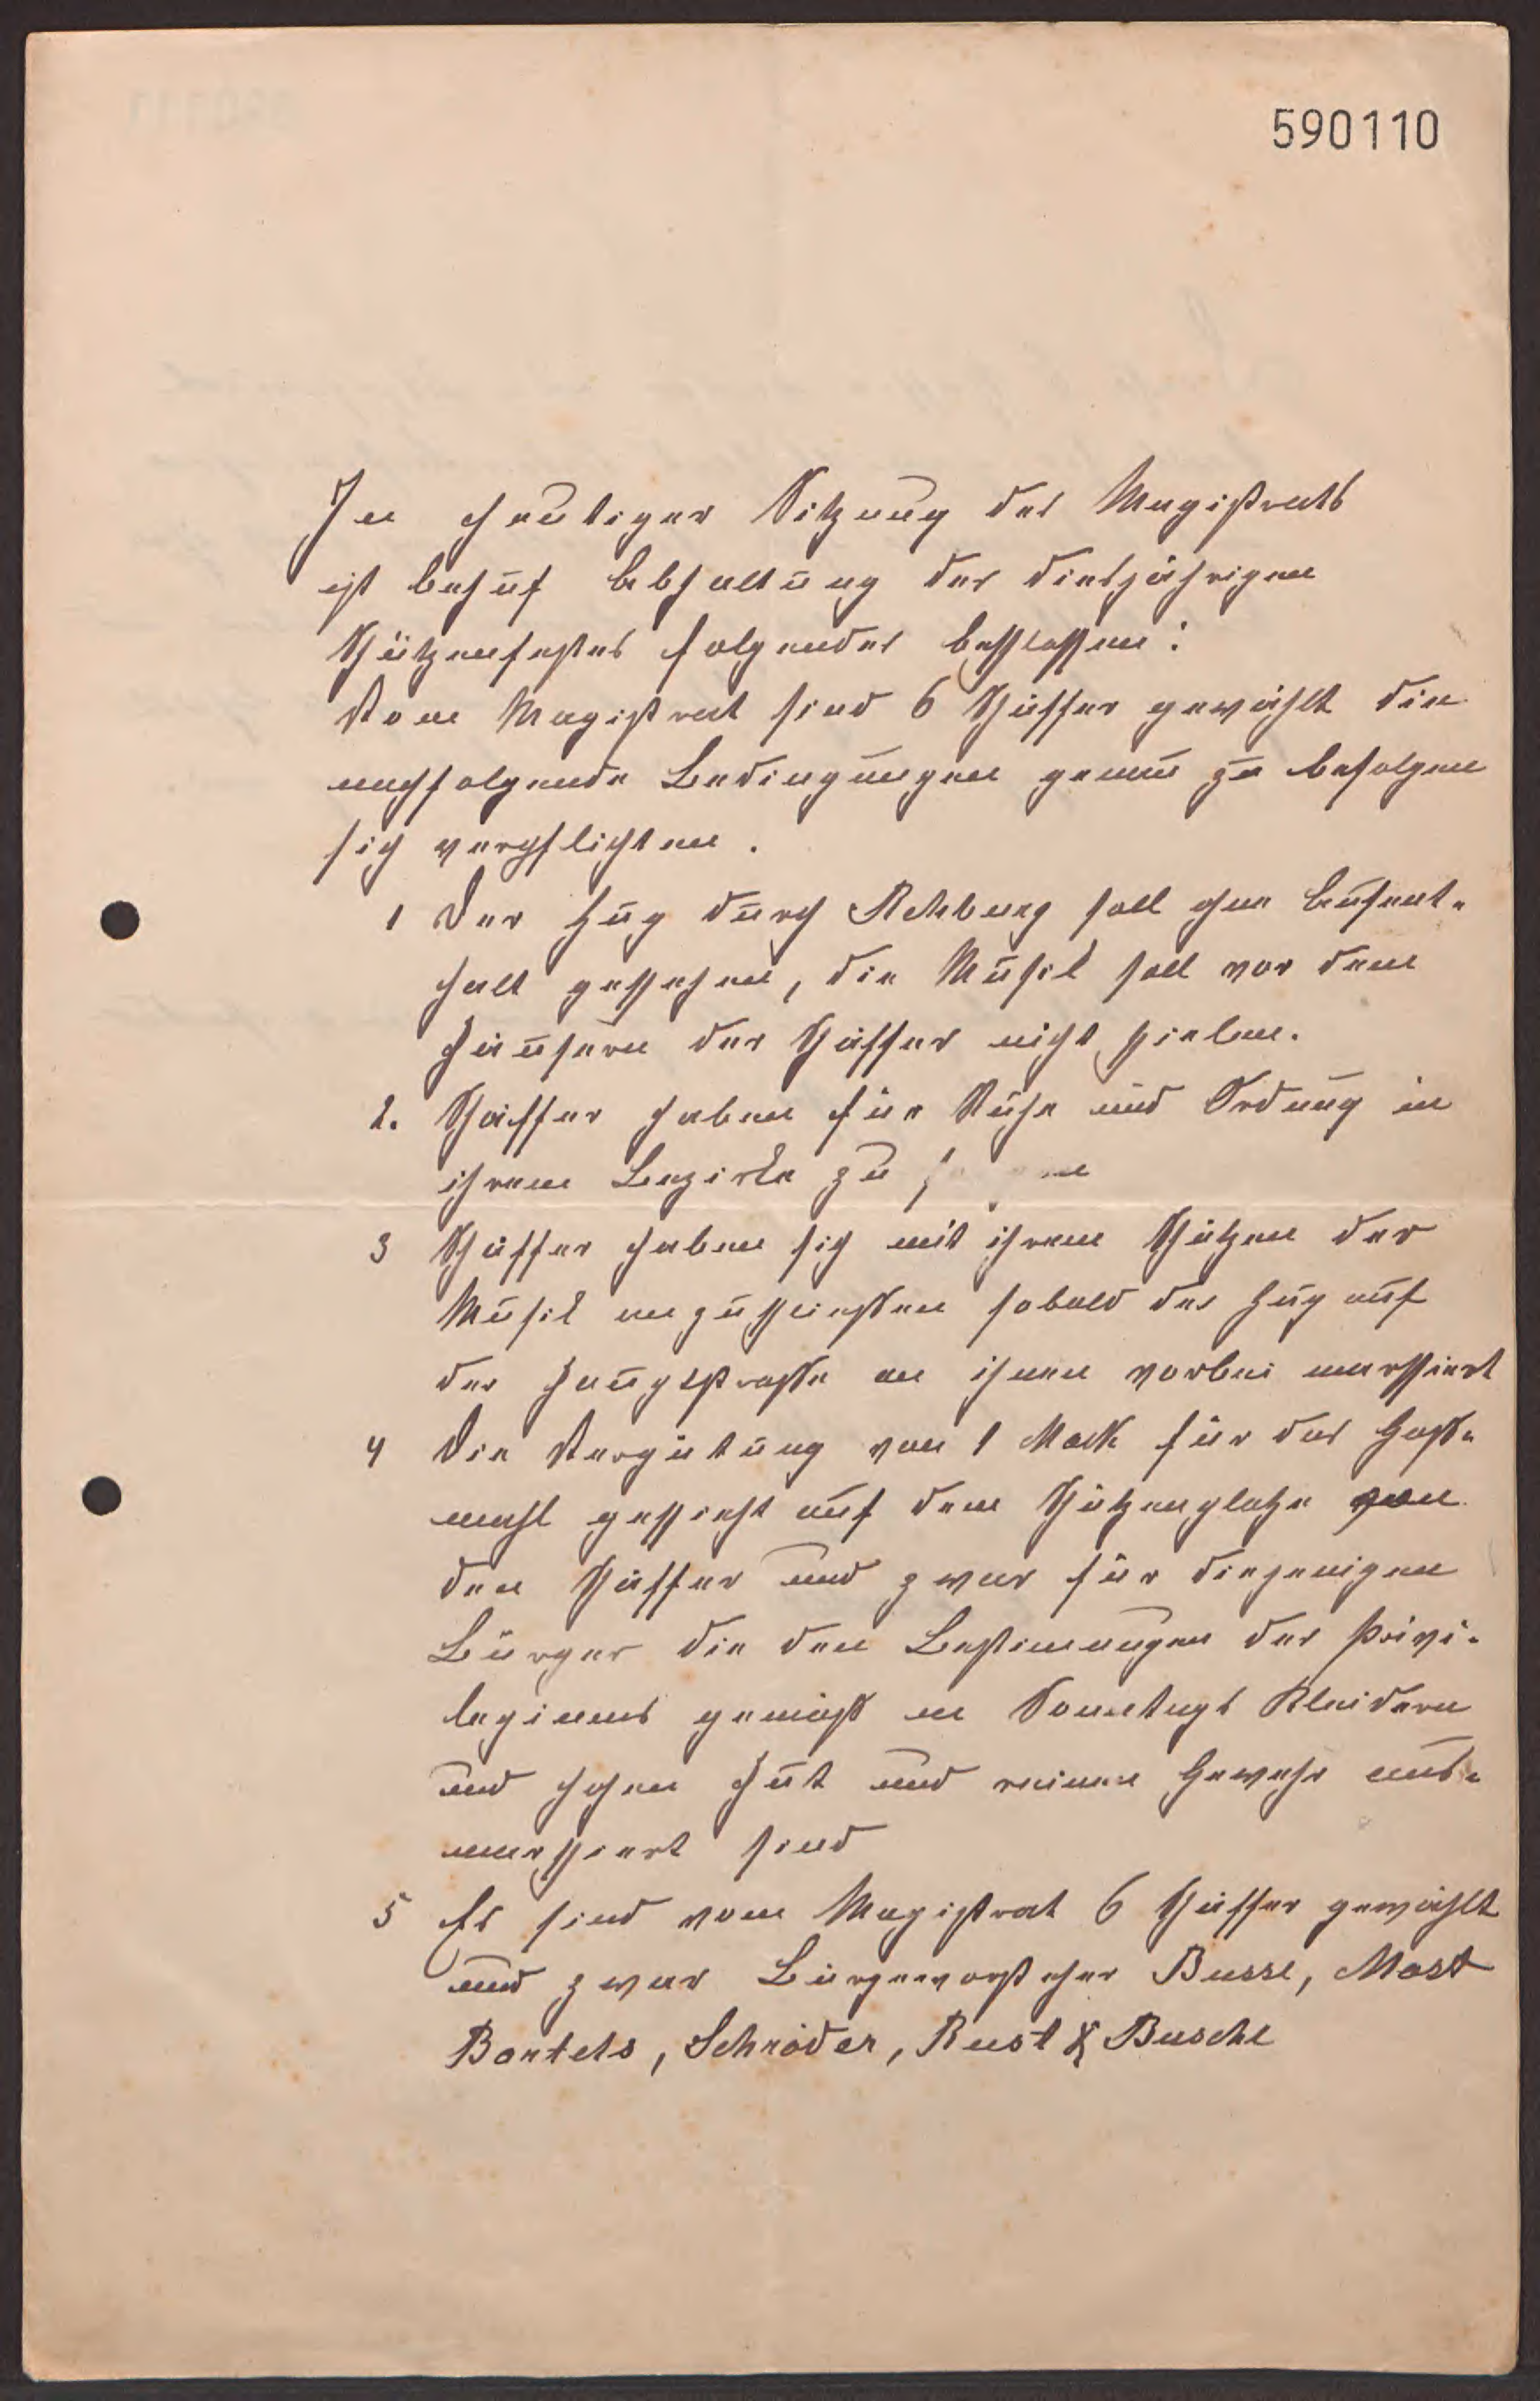 590110
In heutiger Sitzung des Magistrats
ist behuf Abhaltung der diesjährigen
Schützenfestes folgendes beschlossen:
Vom Magistrat sind 6 Schaffer gewählt die
nachfolgende Bedingungen genau zu befolgen
sich verpflichten.
1 Der Zug durch Rehburg soll ohne Aufent-
halt geschehen, die Musik soll vor den
Häusern der Schaffer nicht spielen.
2. Schaffer haben für Ruhe und Ordnung in
ihrem Bezirke zu
3 Schaffer haben sich mit ihren Schützen der
Musik anzuschließen sobald der Zug auf
der Hauptstraße an ihnen vorbei marschiert
4 Die Vergütung von 1 Mark für das Gast-
mahl geschieht auf dem Schützenplatze von
den Schaffer und zwar für diejenigen
Bürger die den Bestimmungen des Privi-
legiums gemäß in Sonntags Kleidern
und hohen Hut und reinem Gewehr aus-
marschiert sind
5 Es sind vom Magistrat 6 Schaffer gewählt
und zwar Bürgervorsteher Busse, Most
Bartels, Schröder, Rust & Busche